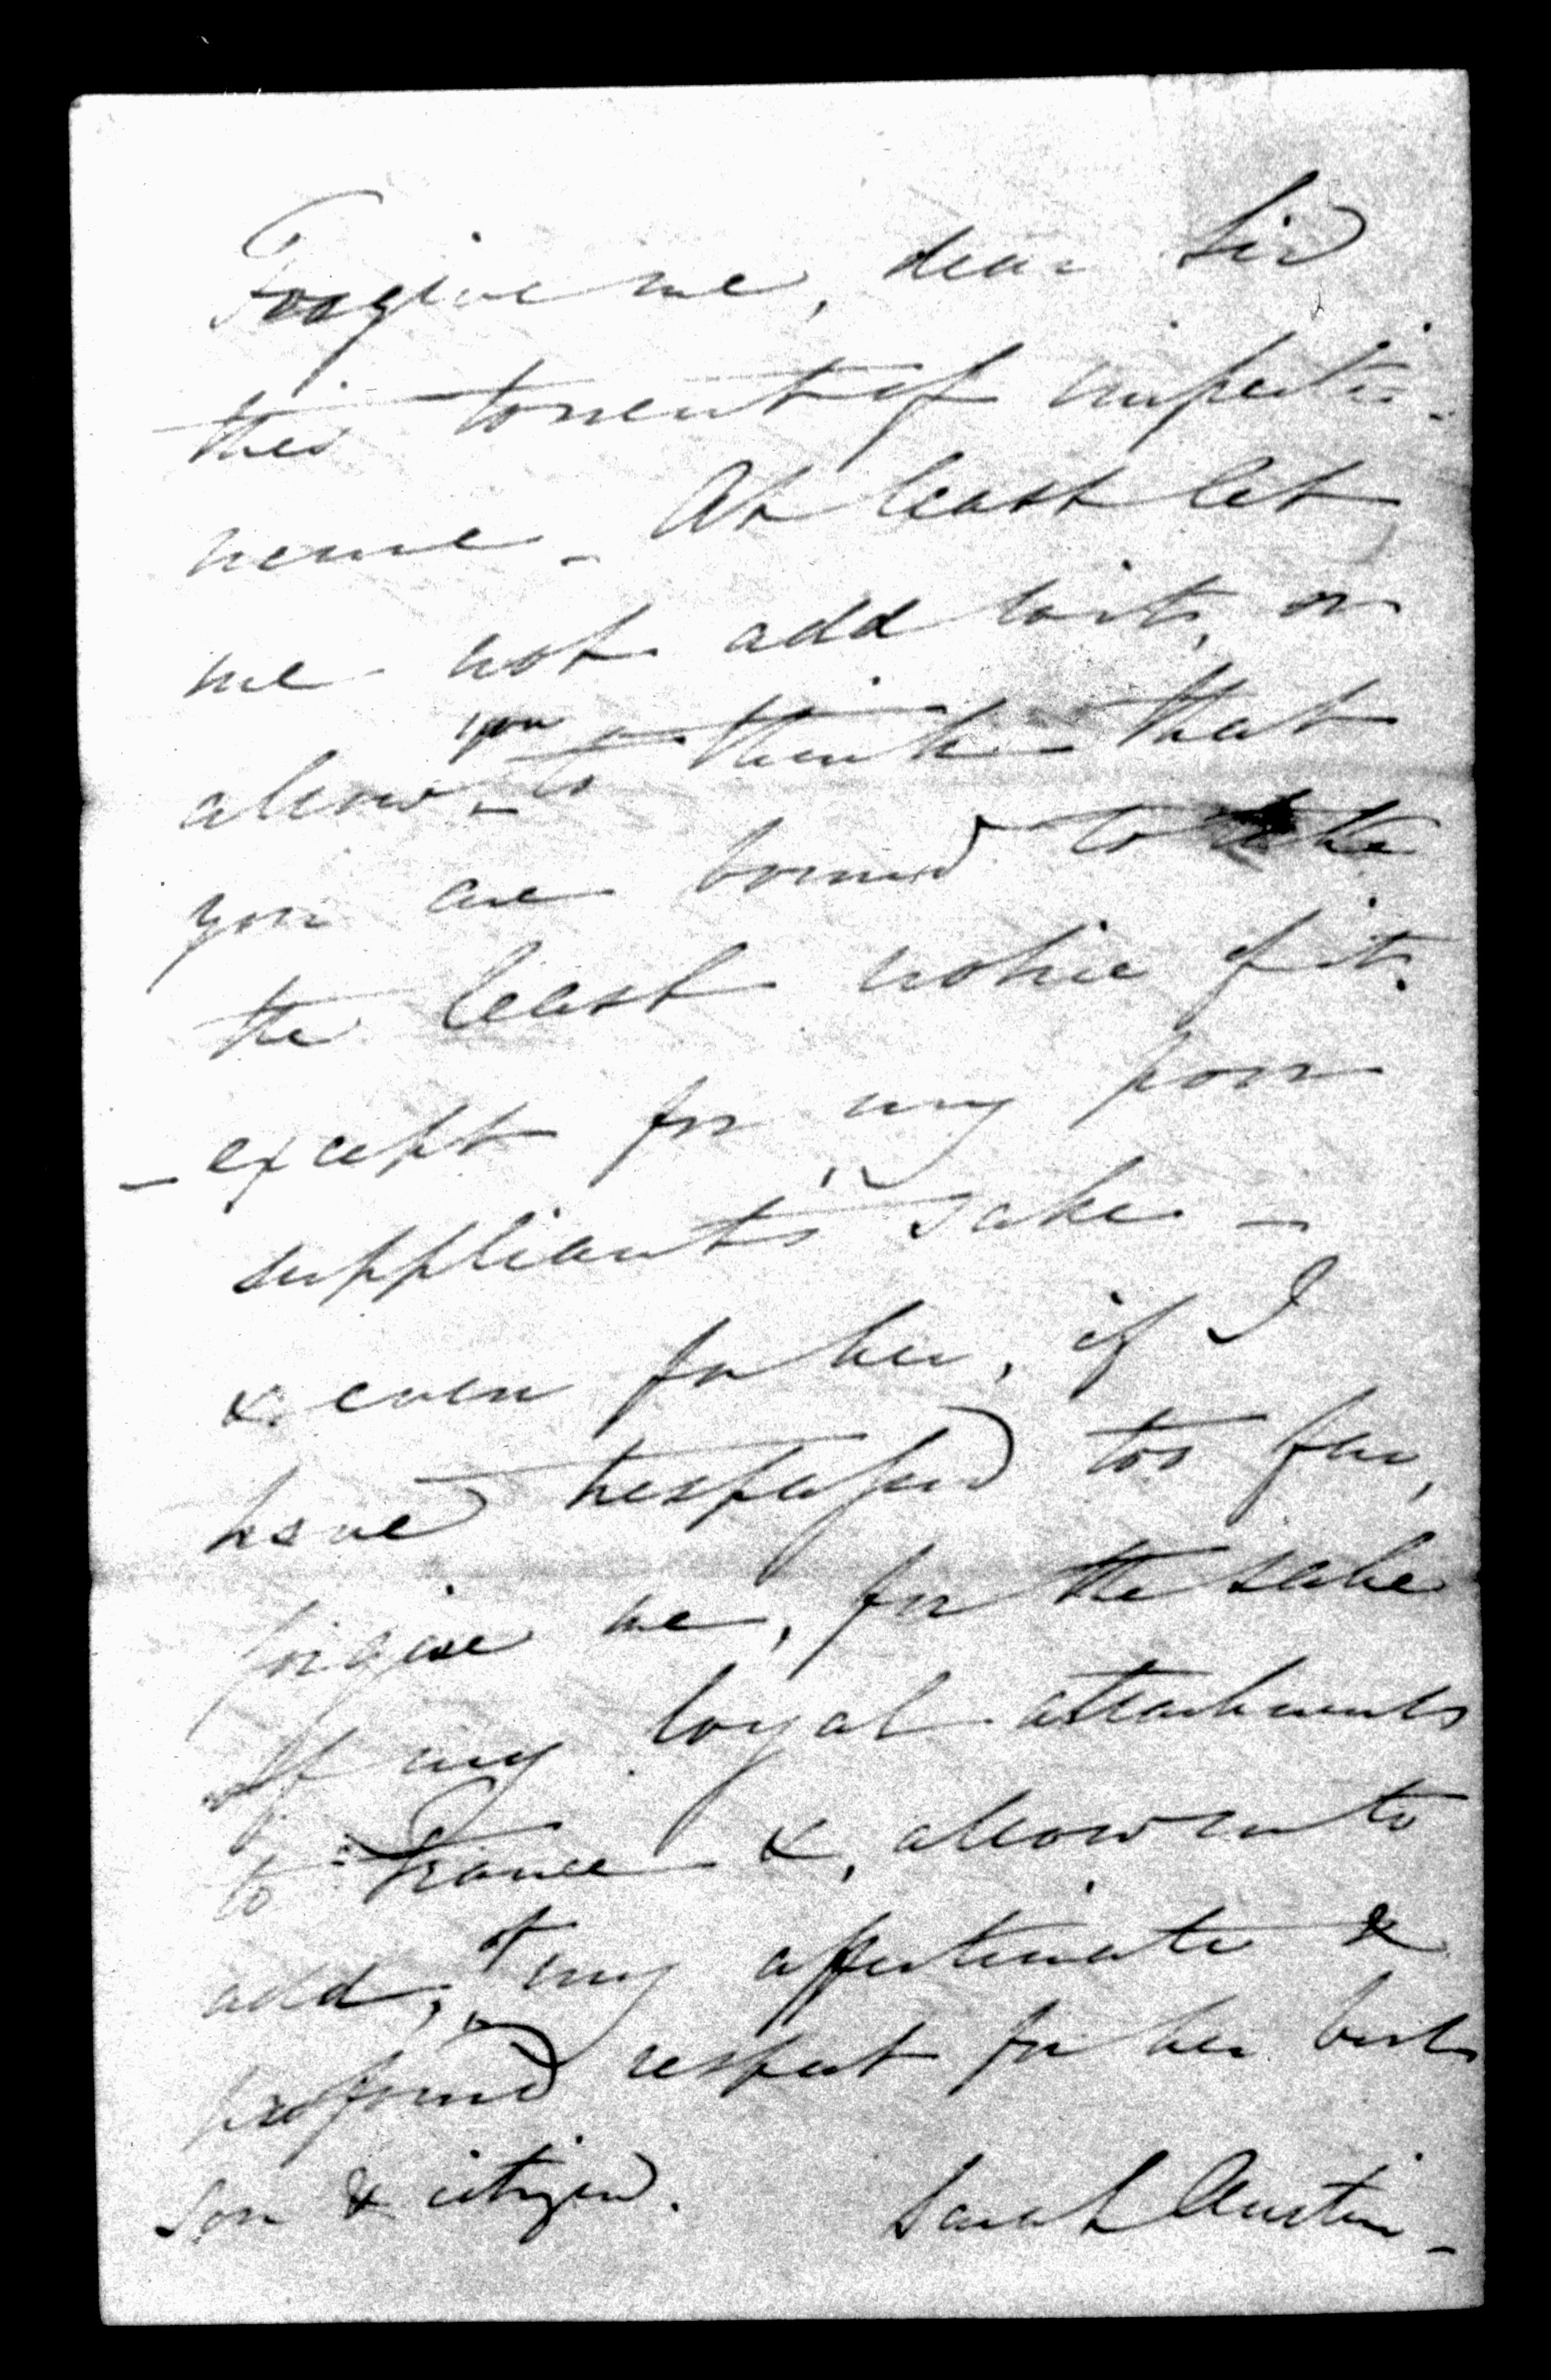 Forgive me, dear Sir
this torrent of imperti-
nence. At least let
me not add to it, or
allow you to think that
you are bound to take
the least notice of it.
– except for my poor
suppliant's sake –
& even for her, if I
have trespassed too far,
forgive me, for the sake
of my loyal attachments
to France &, allow me to
add, of my affectionate &
profound respect for her best
son & citizen.
Sarah Austin –